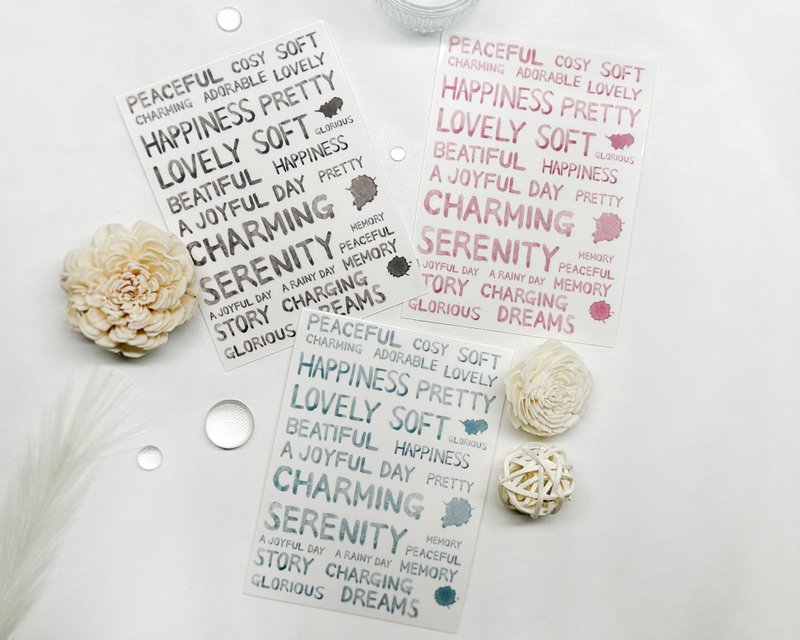 PEACEFUL COSY SOFT
CHARMING ADORABLE LOVELY
HAPPINESS PRETTY
LOVELY SOFT
GLORIOUS
BEATIFUL HAPPINESS
A JOYFUL DAY PRETTY
CHARMING
SERENITY
MEMORY
PEACEFUL
A JOYFUL DAY A RAINY DAY MEMORY
STORY CHARGING
GLORIOUS DREAMS
PEACEFUL COSY SOFT
CHARMING ADORABLE LOVELY
HAPPINESS PRETTY
LOVELY SOFT
GLORIOUS
BEATIFUL HAPPINESS
A JOYFUL DAY PRETTY
CHARMING
SERENITY
MEMORY
PEACEFUL
JOYFUL DAY A RAINY DAY MEMORY
TORY CHARGING
GLORIOUS DREAMS
PEACEFUL COSY SOFT
CHARMING ADORABLE LOVELY
HAPPINESS PRETTY
LOVELY SOFT
GLORIOUS
BEATIFUL HAPPINESS
A JOYFUL DAY PRETTY
CHARMING
SERENITY
MEMORY
PEACEFUL
A JOYFUL DAY A RAINY DAY MEMORY
STORY CHARGING
GLORIOUS DREAMS